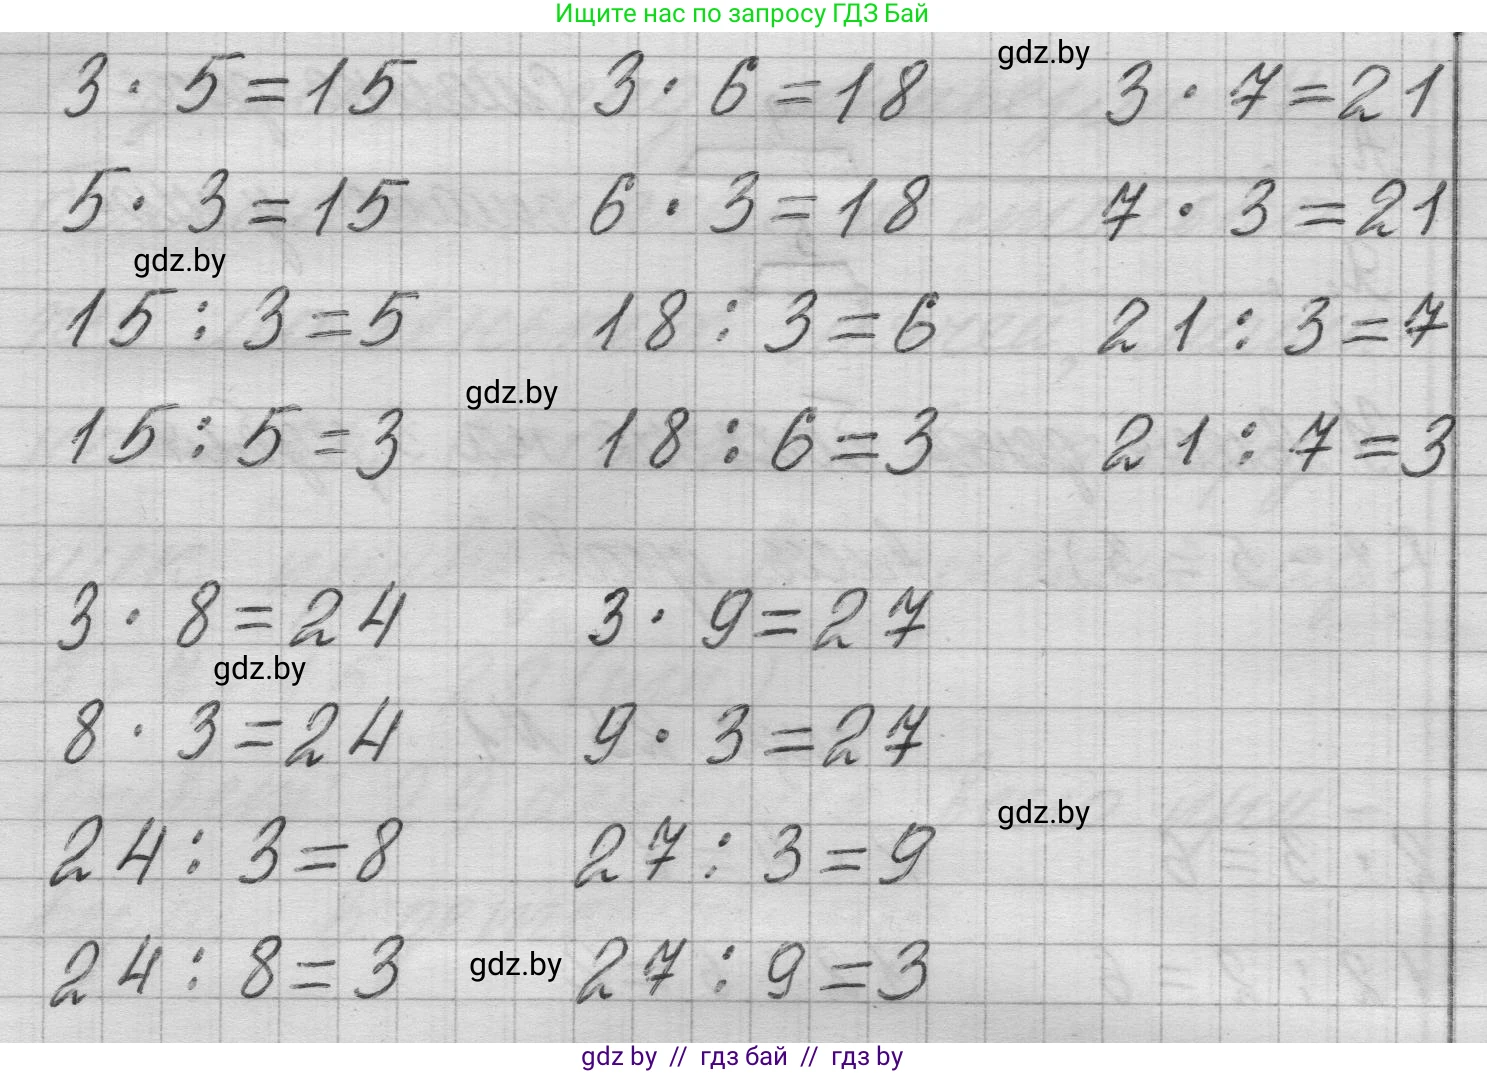 Ищите нас по запросу ГДЗ Бай
gdz.by
3 · 5 = 15 3 · 6 = 18 3 · 7 = 21
5 · 3 = 15 6 · 3 = 18 7 · 3 = 21
gdz.by
15 : 3 = 5 18 : 3 = 6 21 : 3 = 7
gdz.by
15 : 5 = 3 18 : 6 = 3 21 : 7 = 3
3 · 8 = 24 3 · 9 = 27
gdz.by
8 · 3 = 24 9 · 3 = 27
gdz.by
24 : 3 = 8 27 : 3 = 9
24 : 8 = 3 gdz.by 27 : 9 = 3
gdz by // гдз бай // гдз by